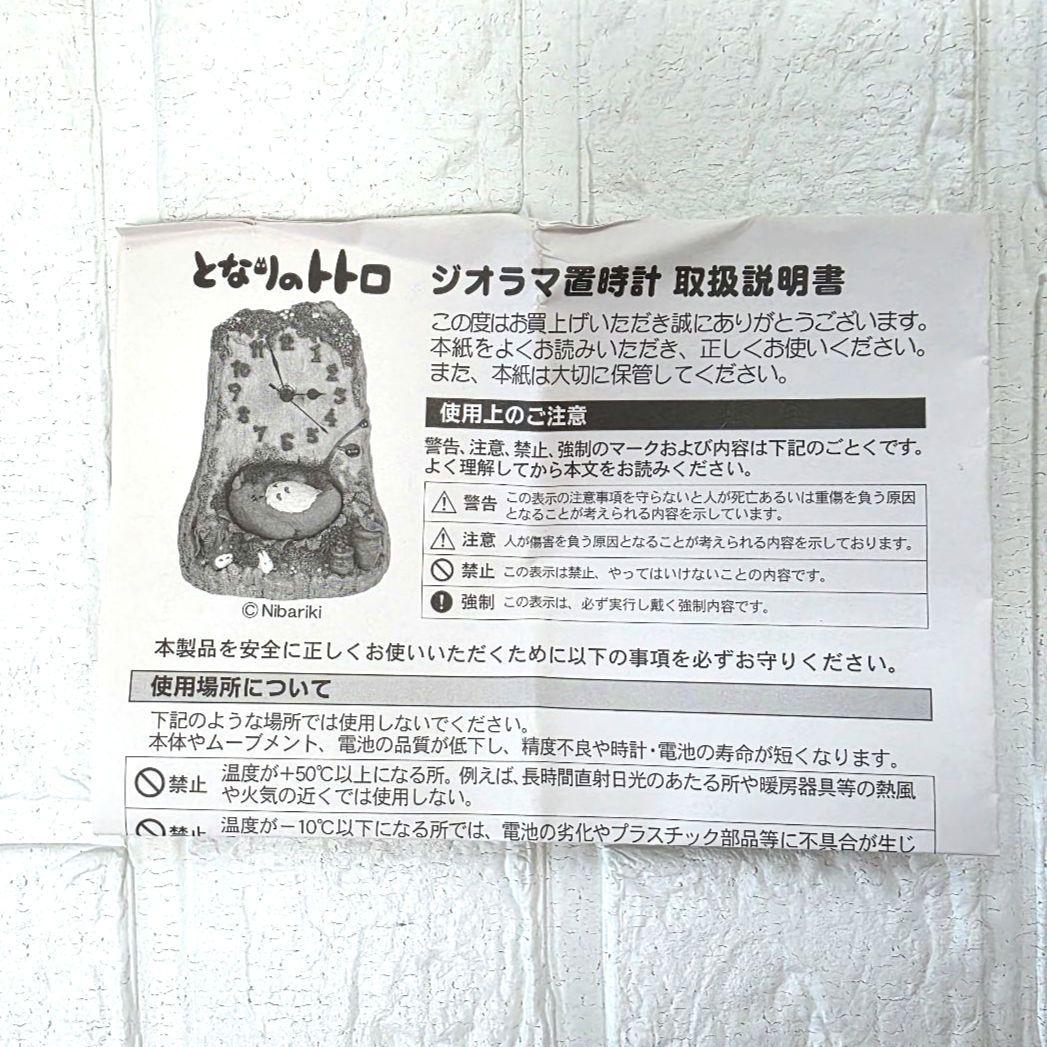 となりのトトロ
ジオラマ置時計 取扱説明書
この度はお買上げいただき誠にありがとうございます。
本紙をよくお読みいただき、正しくお使いください。
また、本紙は大切に保管してください。
11 12 1
10 2
9 3
8 4
7 6 5
© Nibariki
使用上のご注意
警告、注意、禁止、強制のマークおよび内容は下記のごとくです。
よく理解してから本文をお読みください。
警告 この表示の注意事項を守らないと人が死亡あるいは重傷を負う原因
となることが考えられる内容を示しています。
注意 人が傷害を負う原因となることが考えられる内容を示しております。
禁止 この表示は禁止、やってはいけないことの内容です。
強制 この表示は、必ず実行し戴く強制内容です。
本製品を安全に正しくお使いいただくために以下の事項を必ずお守りください。
使用場所について
下記のような場所では使用しないでください。
本体やムーブメント、電池の品質が低下し、精度不良や時計・電池の寿命が短くなります。
禁止 温度が+50℃以上になる所。例えば、長時間直射日光のあたる所や暖房器具等の熱風
や火気の近くでは使用しない。
禁止 温度が−10℃以下になる所では、電池の劣化やプラスチック部品等に不具合が生じ